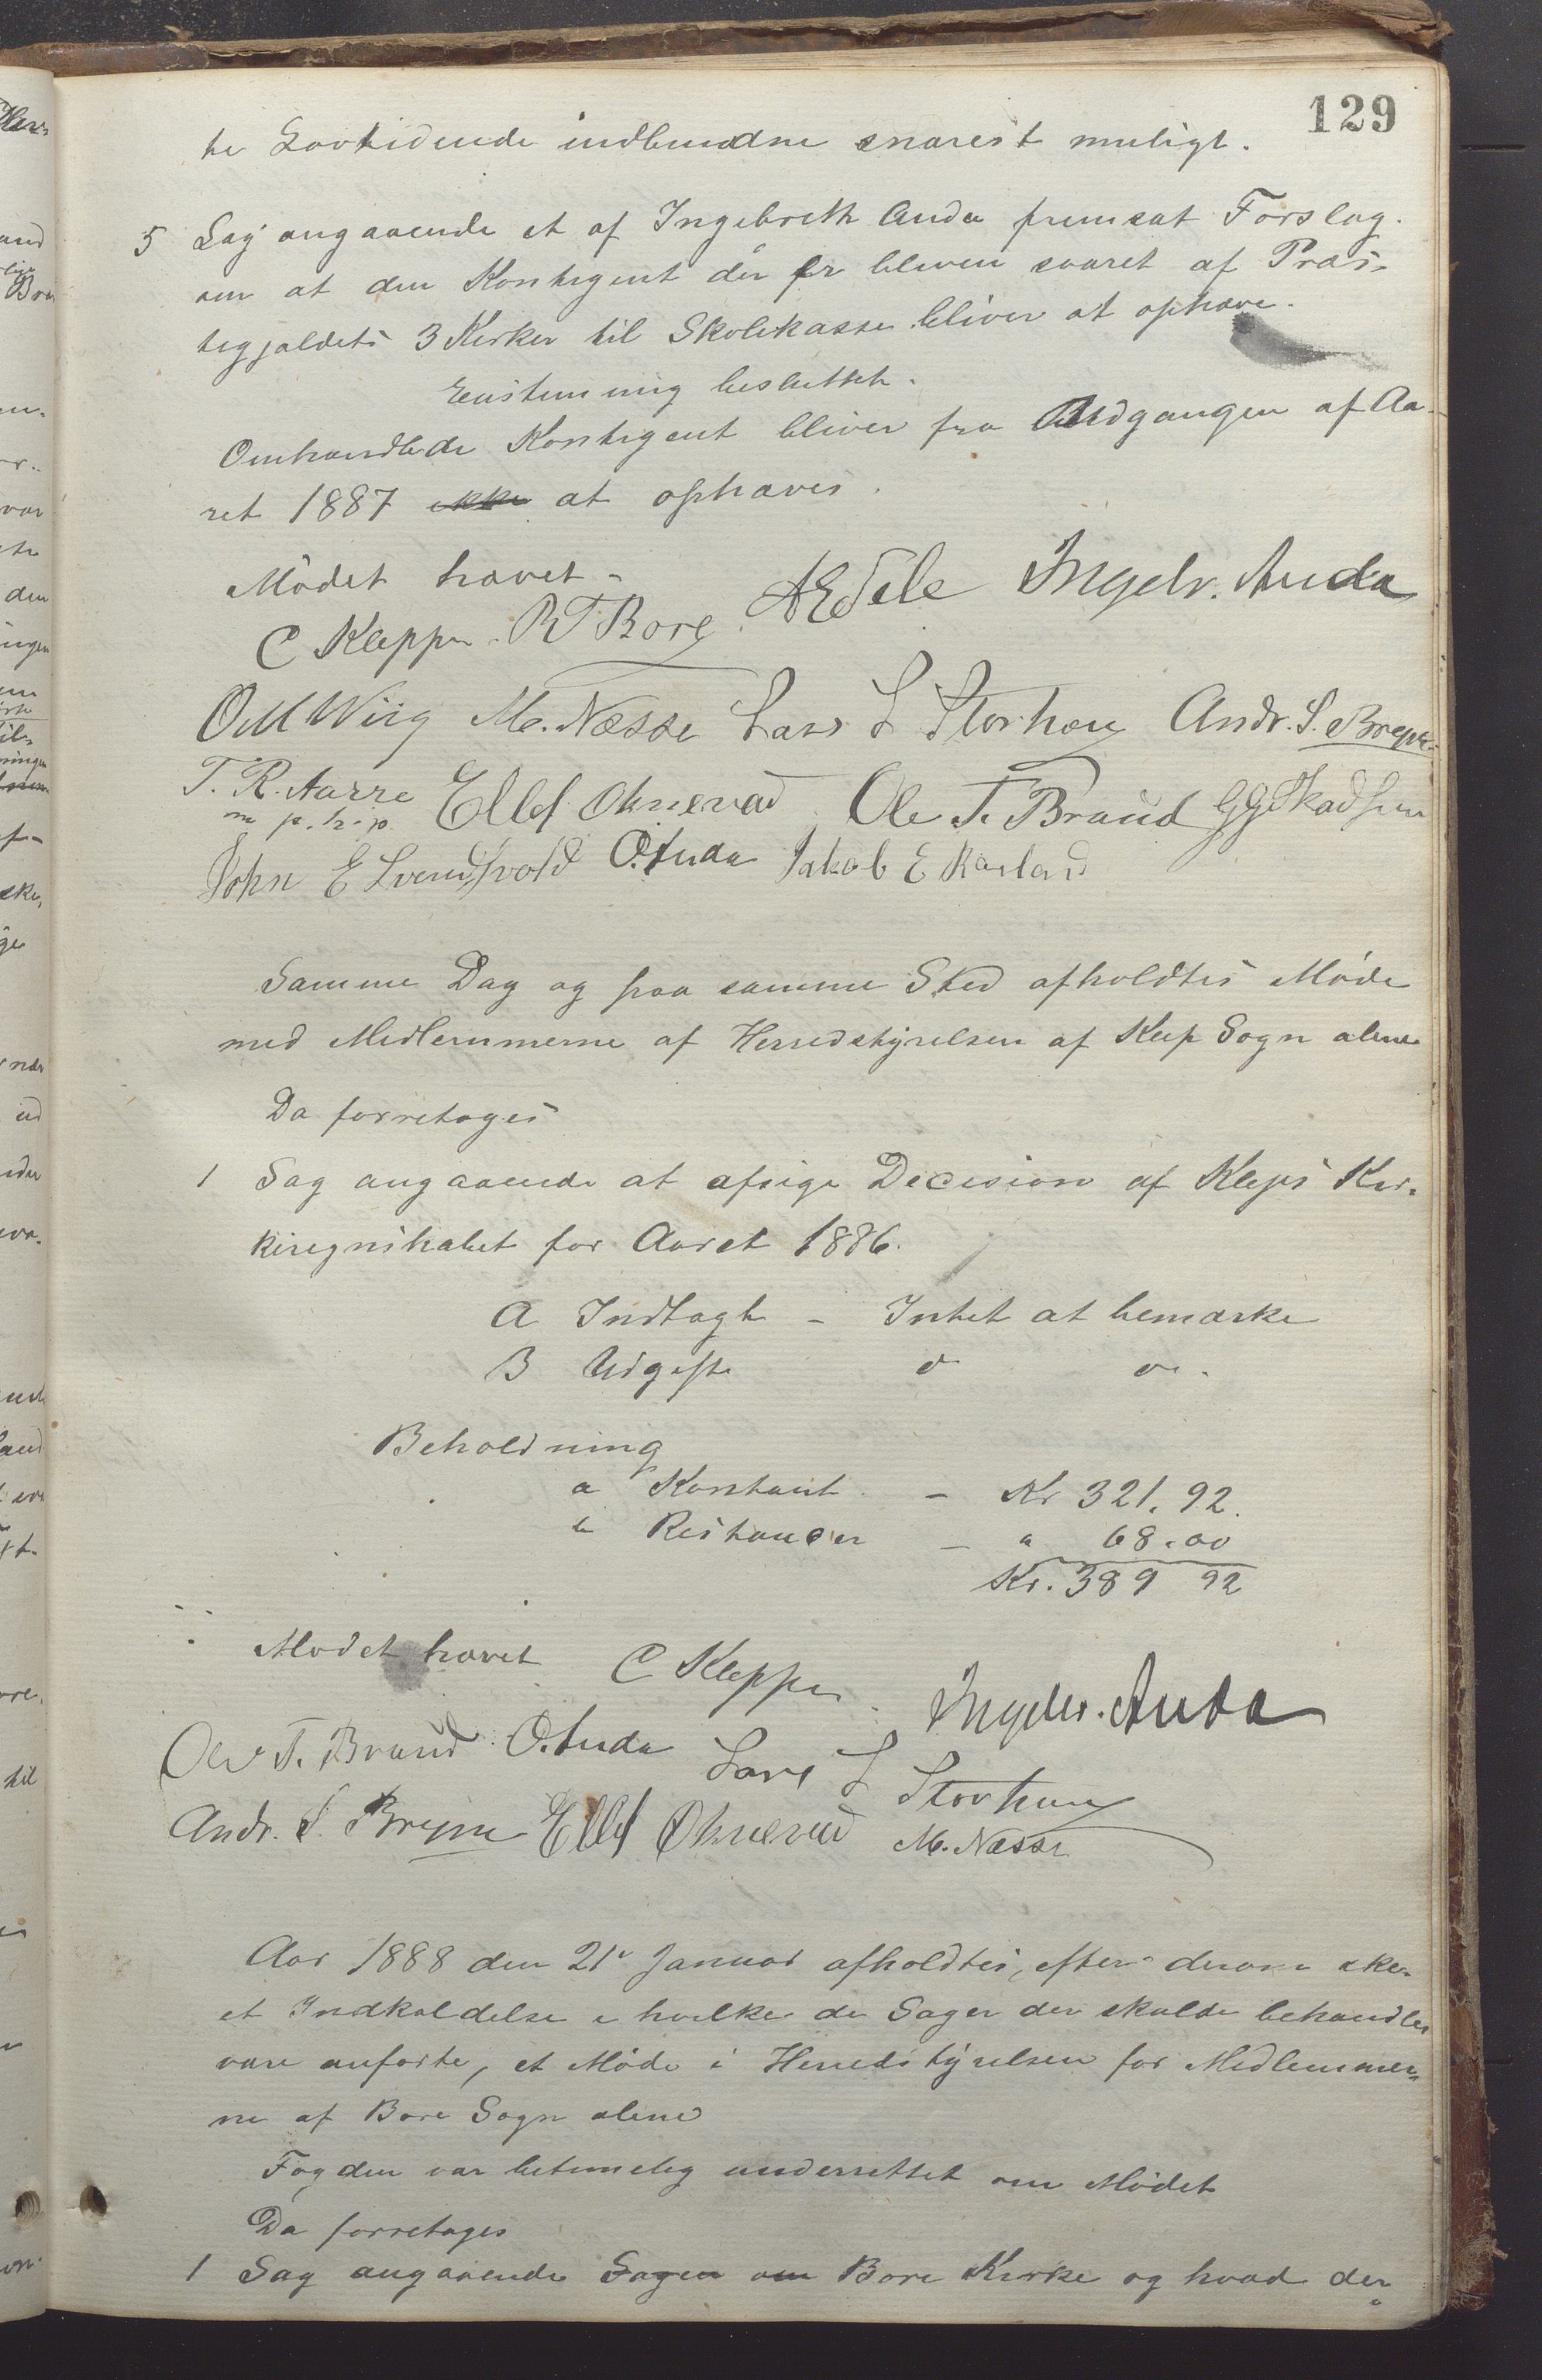 129
te Lovtidende indbundne snarest muligt.
5 Sag angaaende et af Ingebreth Anda fremsat Forslag
om at den Kontigent der er bleven svaret af Præs-
tegjældets 3 Kirker til Skolekasse bliver at ophæve.
Enstemmig besluttet.
Omhandlede Kontigent bliver fra Udgangen af Aa-
ret 1887 ikke at ophæves.
Mødet hævet.
C Kleppe. R T Bore. A Edele Ingebr. Anda
O M Wiig M. Næsse Lars L Storhoug Andr. S. Bryne
T. R. Aarre Ellef Øksnevad Ole T. Braud G G Skadsem
m p. h. p.
John E Svendsvold O. Anda Jakob E Rarland
Samme Dag og paa samme Sted afholdtes Møde
med Medlemmerne af Herredstyrelsen af Klep Sogn alene
Da forretoges
1 Sag angaaende at afsige Decision af Kleps Kir-
keregnskabet for Aaret 1886.
A Indtægt - Intet at bemærke
B Udgift do do.
Beholdning
a Kontant - Kr 321. 92.
b Restancer - " 68.00
Kr. 389 92
Mødet hævet C Kleppe Ingebr. Anda
Ole T. Braud O. Anda Lars L Storhoug
Andr. S. Bryne Ellef Øksnevad M. Næsse
Aar 1888 den 21de Januar afholdtes, efter derom ske-
et Indkaldelse i hvilke de Sager der skulde behandles
vare anførte, et Møde i Herredstyrelsen for Medlemmer-
ne af Bore Sogn alene
Fogden var betimelig underrettet om Mødet
Da forretoges
1 Sag angaaende Sagen om Bore Kirke og hvad der